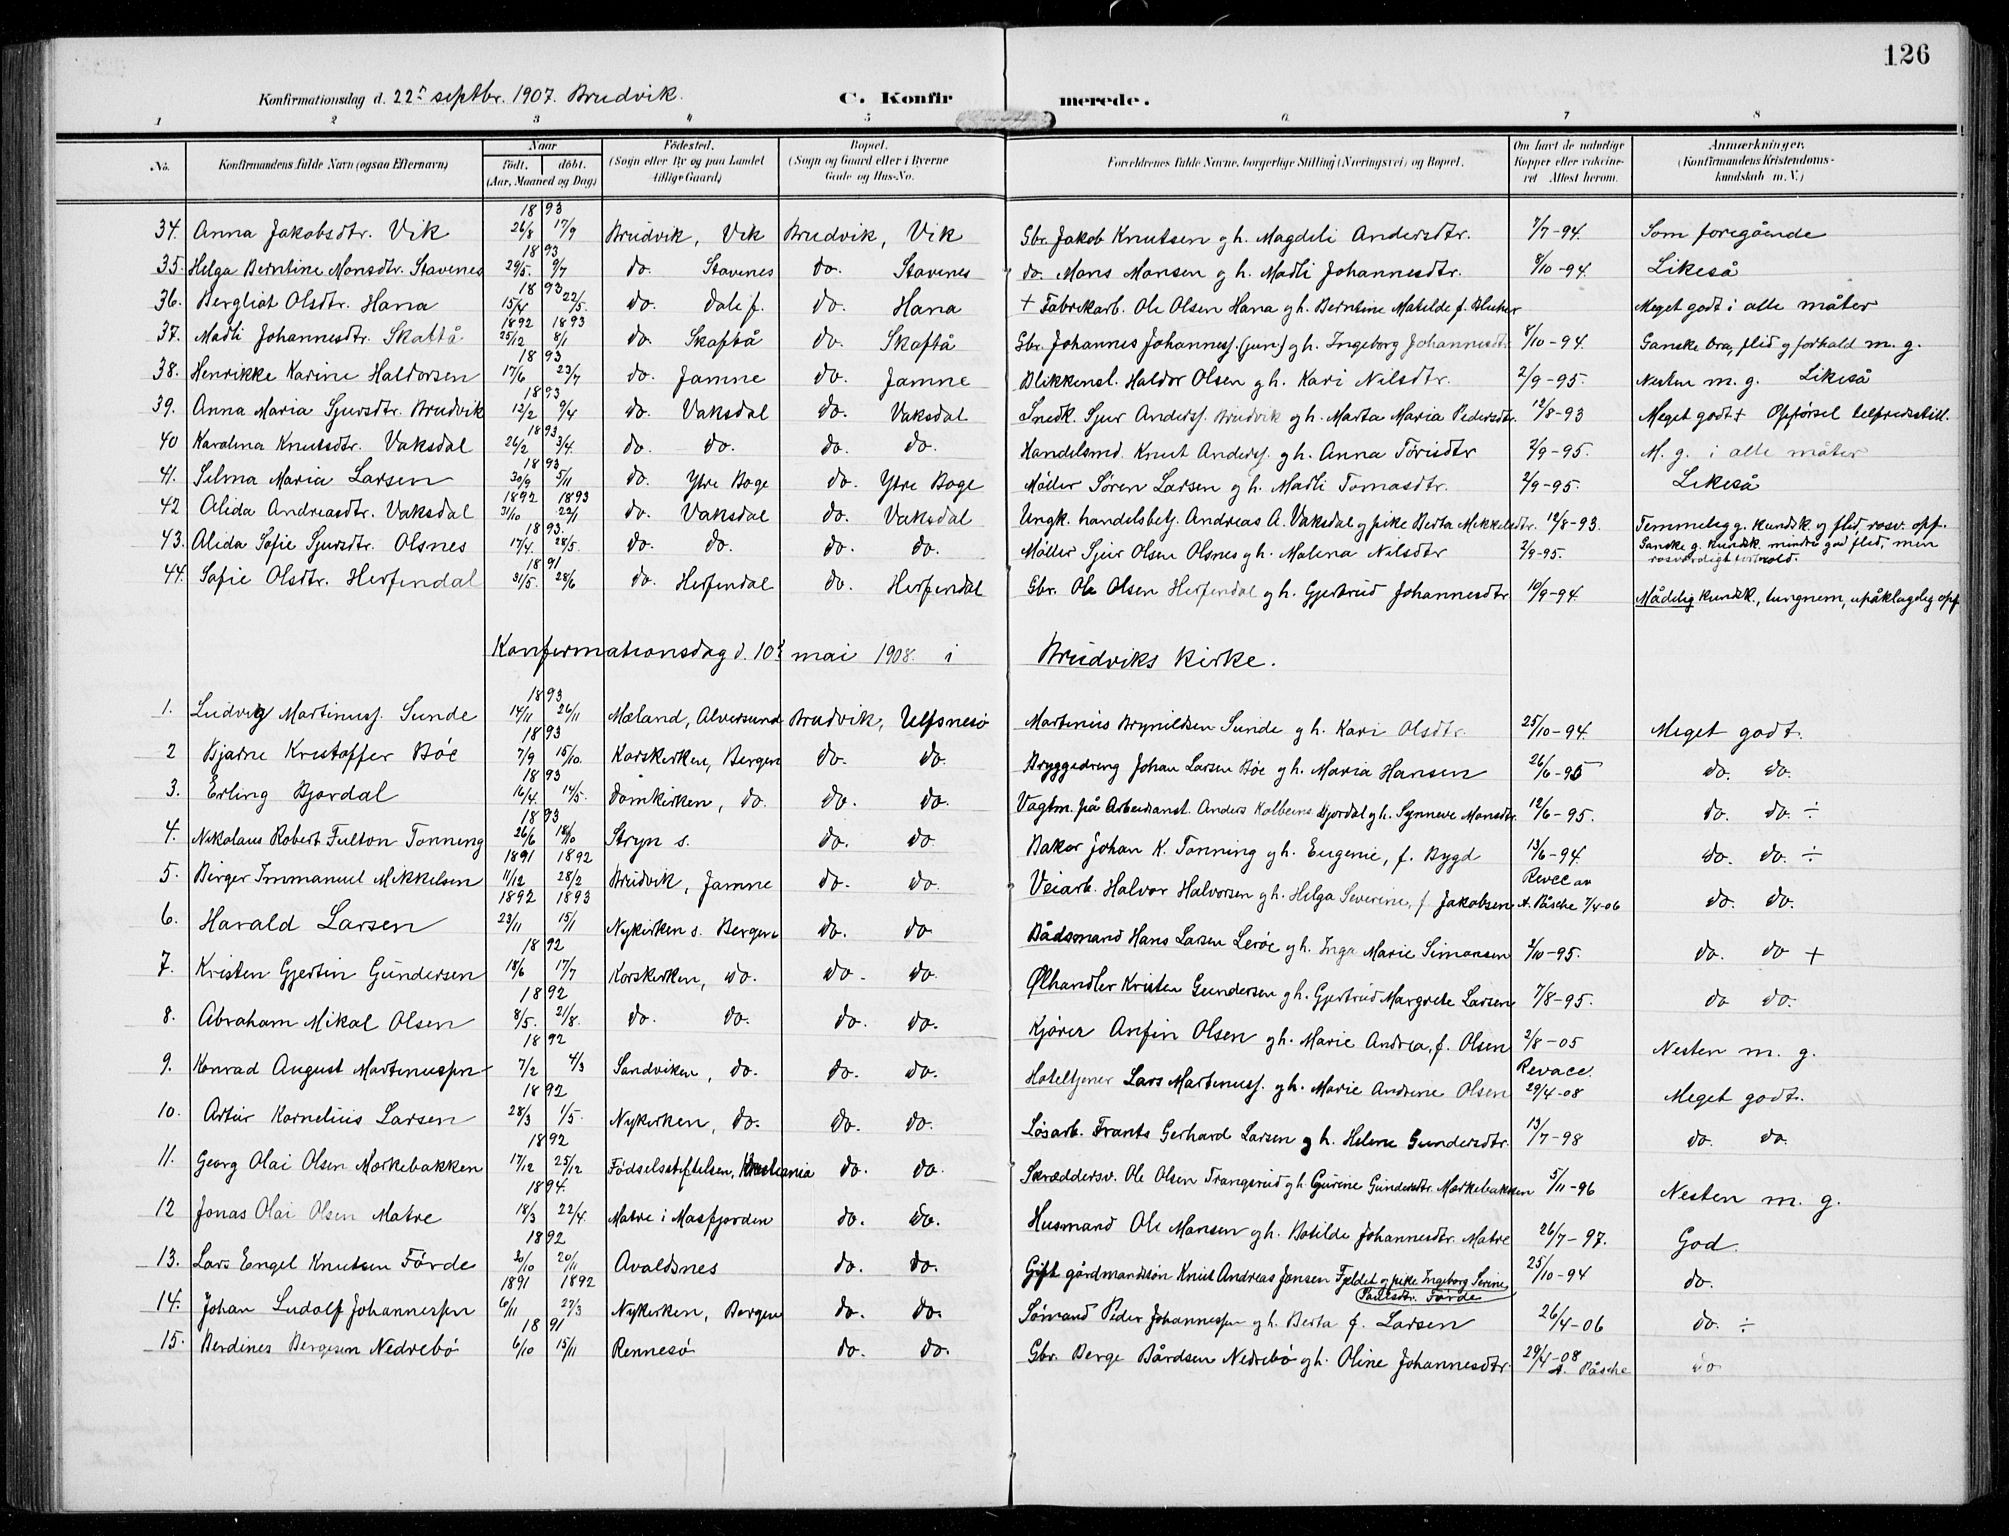 126
Konfirmationsdag d. 22de septbr. 1907. Brudvik. C. Konfirmerede.
1 2 3 4 5 6 7 8
No. Konfirmandens fulde Navn (ogsaa Efternavn) Naar født. døbt. (Aar, Maaned og Dag) Fødested. (Sogn eller By og paa Landet tillige Gaard) Bopæl. (Sogn og Gaard eller i Byerne Gade og Hus-No. Forældrenes fulde Navne, borgerlige Stilling (Næringsvei) og Bopæl. Om havt de naturlige Kopper eller vakcineret Attest herom. Anmærkninger. (Konfirmandens Kristendomskundskab m. V.)
34. Anna Jakobsdtr. Vik 1893 26/8 17/9 Brudvik, Vik Brudvik, Vik Gbr. Jakob Knutsen og h. Magdeli Andersdtr. 7/7-94. Som foregående
35. Helga Berntine Monsdtr. Stavenes 1893 29/5. 9/7 do. Stavenes do. Stavenes do. Mons Monsen og h. Madli Johannesdtr. 8/10-94. Likeså
36. Bergliot Olsdtr. Hana 1893 15/4 22/5. do. Dale f. do. Hana + Fabrikarb. Ole Olsen Hana og h. Berntine Matilde f. Blicher Meget godt i alle måter
37. Madli Johannesdtr. Skaftå 1892 1893 25/12 8/1 do. Skaftå do. Skaftå Gbr. Johannes Johannesf. (jun) og h. Ingeborg Johannesdt. 8/10-94. Ganske bra, flid og forhold m. g.
38. Henrikke Karine Haldorsen 1893 17/6 23/7 do. Jamne do. Jamne Blikkensl. Haldor Olsen og h. Kari Nilsdtr. 2/9-95. Nesten m. g. Likeså
39. Anna Maria Sjursdtr. Brudvik 1893 12/2 9/4 do. Vaksdal do. Vaksdal Snedk. Sjur Andersf. Brudvik og h. Marta Maria Pedersdtr. 12/8-93 Meget godt + Opførsel tilfredsstill.
40 Karolina Knutsdtr. Vaksdal 1893 26/2 3/4. do. do. do. do. Handelsmd. Knut Andersf. og h. Anna Torisdtr 2/9-95. M. g. i alle måter
41. Selma Maria Larsen 1893 30/9 5/11 do. Ytre Boge do. Ytre Boge Møller Søren Larsen og h. Madli Tomasdtr. 2/9-95. Likeså
42 Alida Andreasdtr. Vaksdal 1892 1893 31/10 22/1 do. Vaksdal do. Vaksdal Ungk. handelsbetj. Andreas A. Vaksdal og pike Berta Mikkelsdtr. 12/8-93. Temmelig g. kundsk. og flid, rosv. opf.
43. Alida Sofie Sjursdtr. Olsnes 1893. 17/4. 28/5. do. do. do. do. Møller Sjur Olsen Olsnes og h. Malena Nilsdtr 2/9-95. Ganske g. kundsk. mindre god flid, men rosværdigt forhold.
44. Sofie Olsdtr. Herfendal 1891 31/5. 28/6 do. Herfendal do. Herfendal Gbr. Ole Olsen Herfendal og h. Gjertrud Johannesdtr 10/9-94. Mådelig kundsk., tungnem, upåklagelig opf.
Konfirmationsdag d. 10de mai 1908. i Brudviks kirke.
1. Ludvig Martinusf. Sunde 1893 14/11 26/11 Mæland, Alversund Brudvik, Ulfsnesø Martinus Brynildsen Sunde og h. Kari Olsdtr. 25/10-94. Meget godt.
2 Bjarne Kristoffer Bøe 1893 7/9 15/10. Korskirken, Bergen do. do. Bryggedreng Johan Larsen Bøe og h. Maria Hansen 26/6-95 do. do.
3. Erling Bjordal 1893 16/4. 14/5. Domkirken, do. do. do. Vagtm. på Arbeidsanst. Anders Kolbens Bjordal og h. Synneve Monsdtr. 12/6-95. do. do. ÷
4. Nikolaus Robert Fulton Tonning 1893 26/6 18/10 Stryn s. do. do Baker Johan K. Tonning og h. Eugenie, f. Bygd 13/6-94. do. do. ÷
5. Birger Immanuel Mikkelsen 1891 1892 11/12 28/2 Brudvik, Jamne do. do. Veiarb. Halvor Halvorsen og h. Helga Severine, f. Jakobsen Revac av A. Påsche 7/4-06 do. do.
6. Harald Larsen 1892 1893 23/11 15/1 Nykirken s. Bergen do. do Bådsmand Hans Larsen Lerøe og h. Inga Marie Simonsen 2/10-95. do. do +
7. Kristen Gjertin Gundersen 1892 18/6 17/7 Korskirken, do. do. do. Ølhandler Kristen Gundersen og h. Gjertrud Margrete Larsen 7/8-95. do do.
8. Abraham Mikal Olsen 1892 8/5. 21/8. do. do. do. do. Kjører Anfin Olsen og h. Marie Andrea, f. Olsen 2/8-05 Nesten m. g.
9. Konrad August Martinussen 1892 7/2 4/3 Sandviken, do. do. do. Hoteltjener Lars Martinusf. og h. Marie Andrine Olsen Revacc. 29/4-08 Meget godt.
10. Artur Kornelius Larsen 1892 28/3 1/5. Nykirken, do. do. do. Løsarb. Frants Gerhard Larsen og h. Helene Gundersdtr. 13/7-98 do. do.
11. Georg Olai Olsen Mørkebakken 1892 17/12 25/12 Fødselsstiftelsen, Kristiania do. do. Skræddersv. Ole Olsen Trangsrud og h. Gurine Gundersdtr. Mørkebakken 5/11-96 Nesten m. g.
12 Jonas Olai Olsen Matre 1894. 18/3 22/4. Matre i Masfjorden do. do. Husmand Ole Monsen og h. Botilde Johannesdtr. Matre 26/7-97. God.
13. Lars Engel Knutsen Førde 1892 2/10 20/11 Avaldsnes do. do. Gift gårdmandssøn Knut Andreas Jonsen Fjeldet og pike Ingeborg Serine Paulsdtr. Førde 25/10-94 do.
14. Johan Ludolf Johannessen 1891 1892 6/11 27/3 Nykirken, Bergen do. do. Sømand Peder Johannessen og h. Berta f. Larsen 26/4-06 do. ÷
15. Berdines Bergesen Nedrebø 1891 6/10 15/11 Rennesø do. do. Gbr. Berge Bårdsen Nedrebø og h. Oline Johannesdtr 29/4-08 A. Påsche do